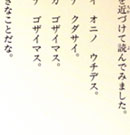 を近づけて読んでみました。
イ オニノ ウチデス。
テ クダサイ。
ガ ゴザイマス。
ゴザイマス。
さなことだな。